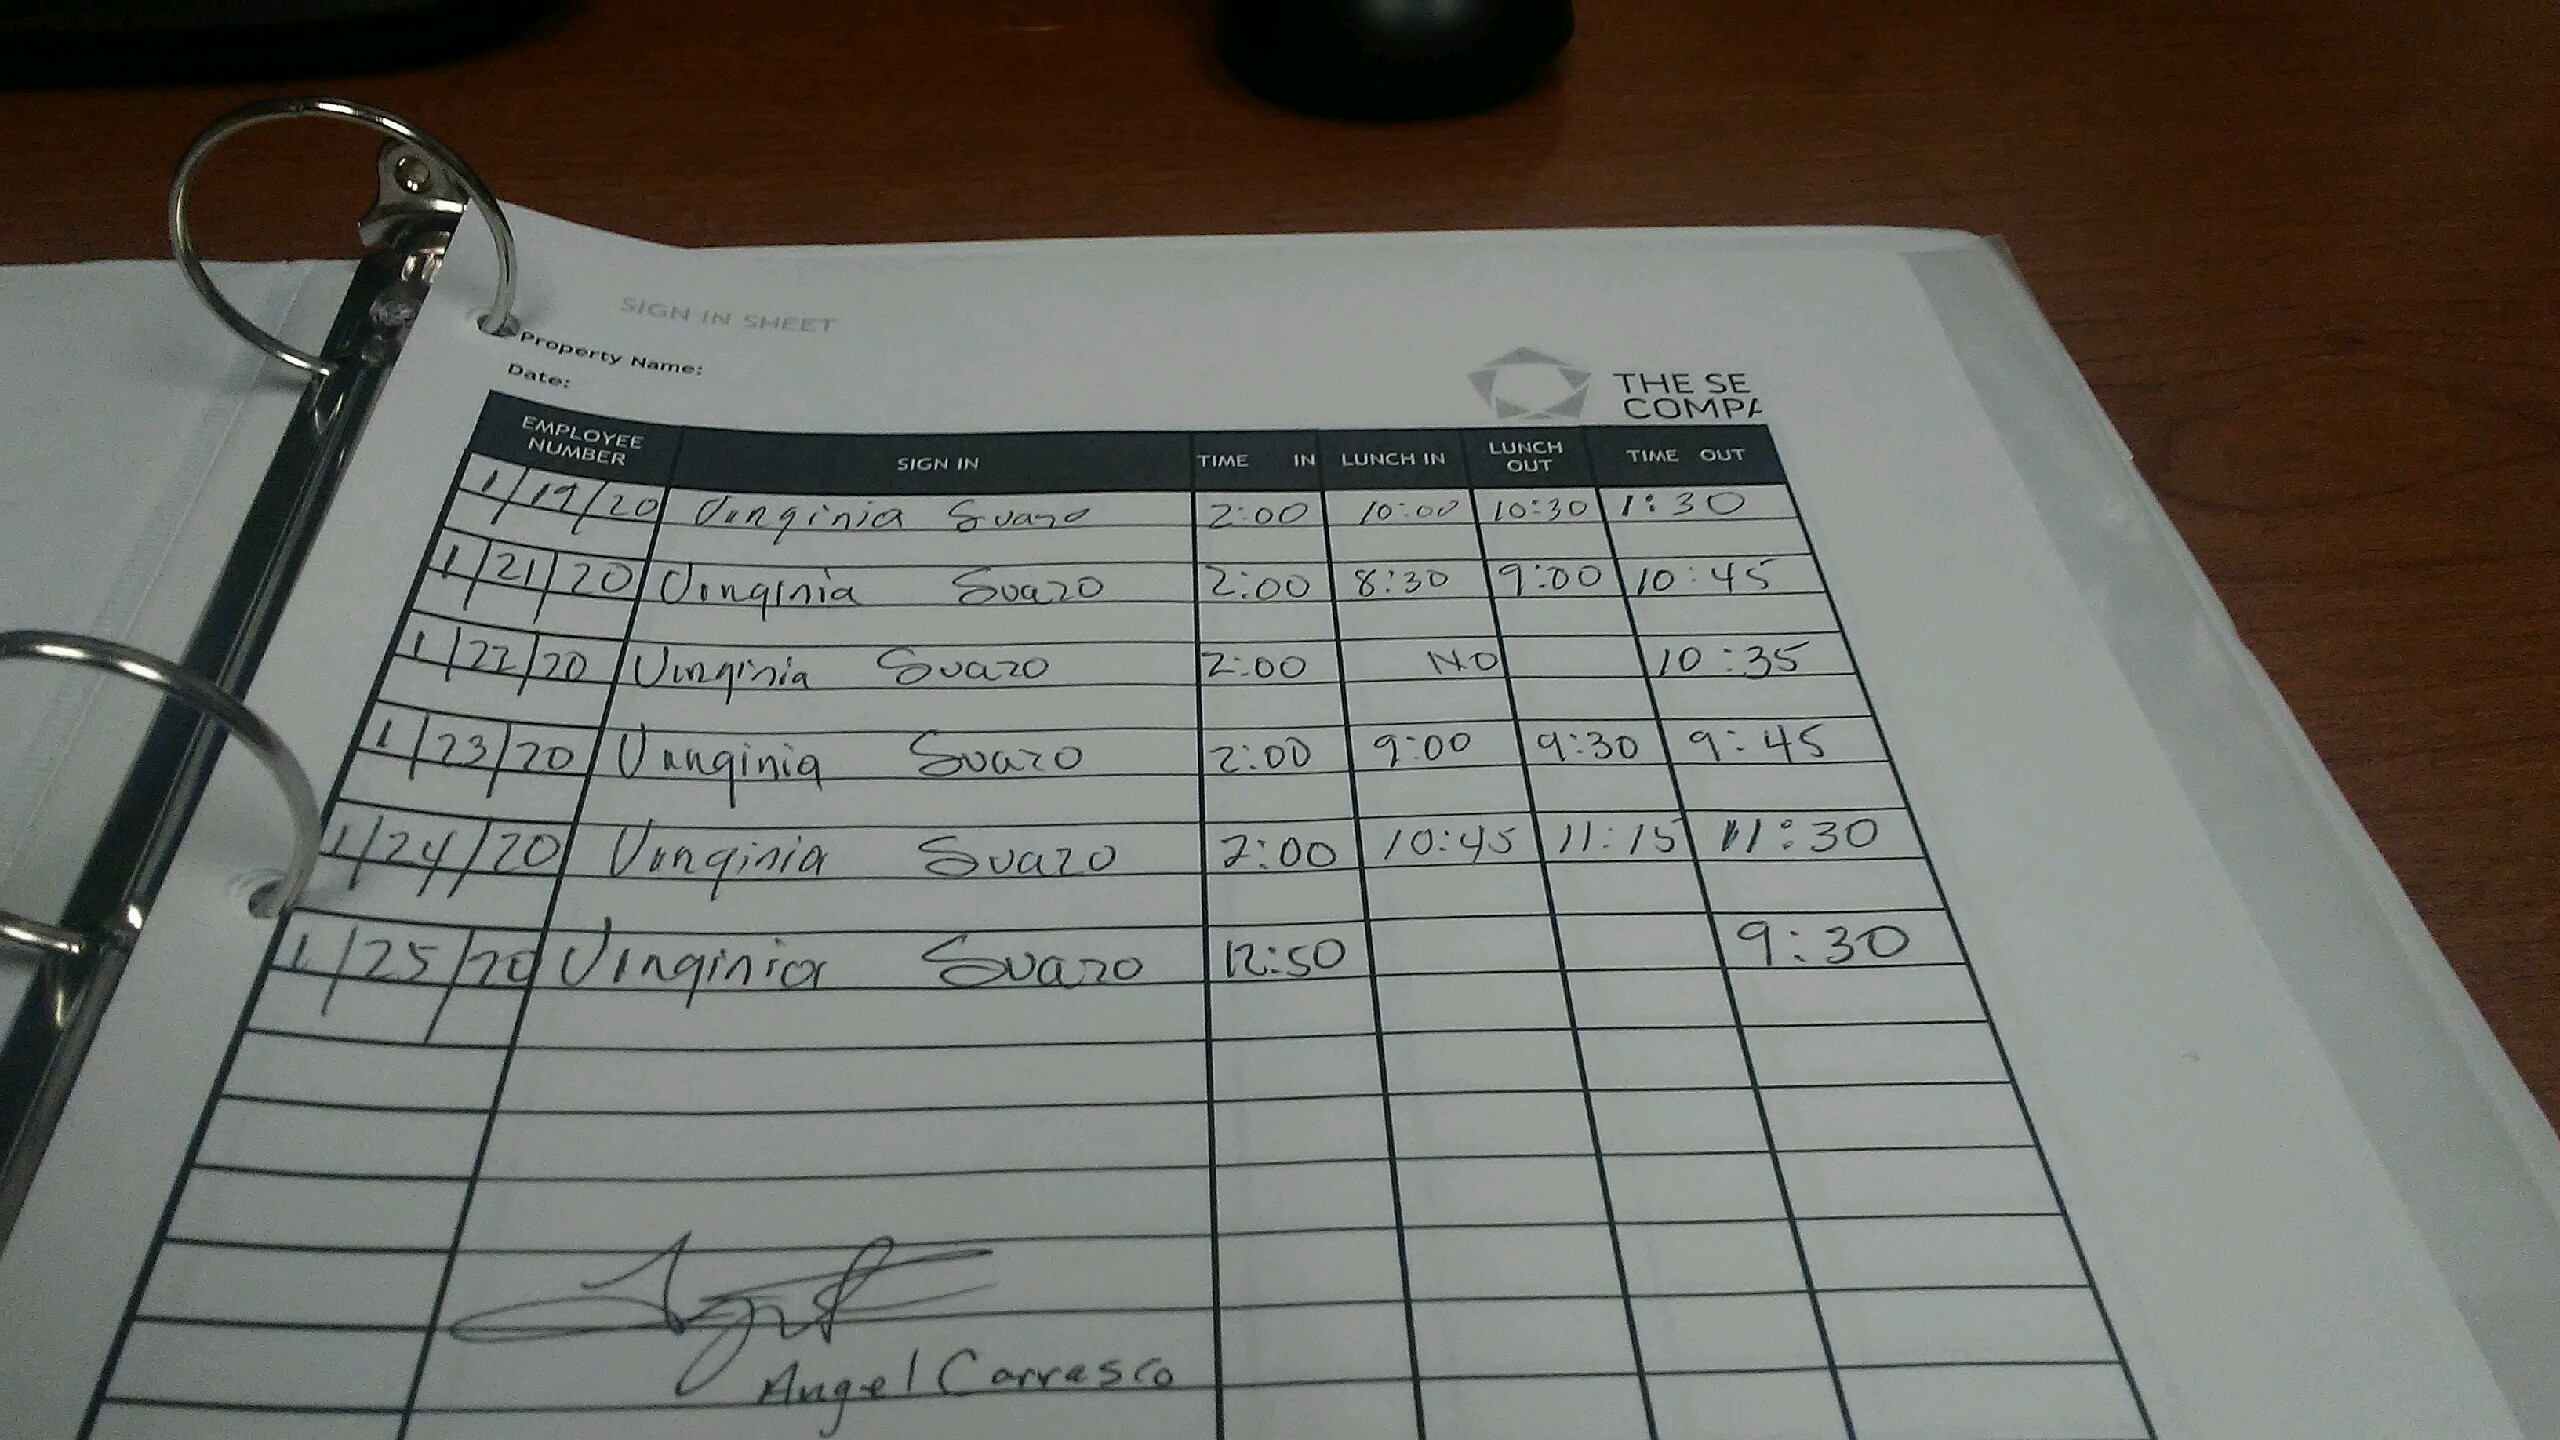 SIGN IN SHEET
Property Name:
Date:
THE SE
COMPA
EMPLOYEE NUMBER SIGN IN TIME IN LUNCH IN LUNCH OUT TIME OUT
1/19/20 Virginia Suazo 2:00 10:00 10:30 1:30
1/21/20 Virginia Suazo 2:00 8:30 9:00 10:45
1/22/20 Virginia Suazo 2:00 NO 10:35
1/23/20 Virginia Suazo 2:00 9:00 9:30 9:45
1/24/20 Virginia Suazo 2:00 10:45 11:15 11:30
1/25/20 Virginia Suazo 12:50 9:30
Angel Carrasco